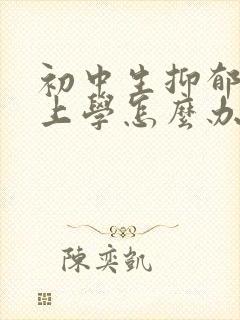 初中生抑郁
上學怎麼办
陳奕凱